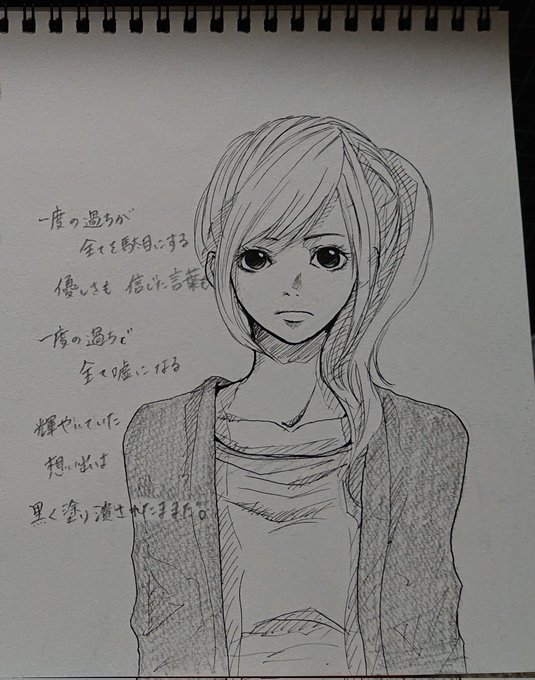 一度の過ちが
全てを駄目にする
優しさも 信じた言葉も
一度の過ちで
全て嘘になる
輝やいていた
想い出は
黒く塗り潰されたままだ。